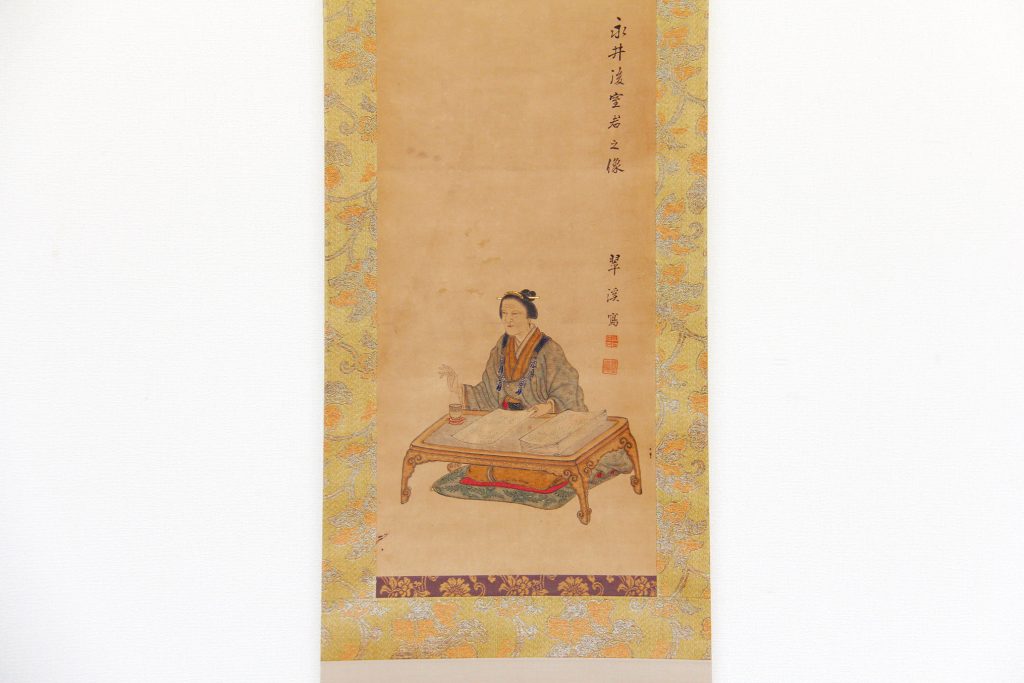 永井後室君之像
翠溪寫